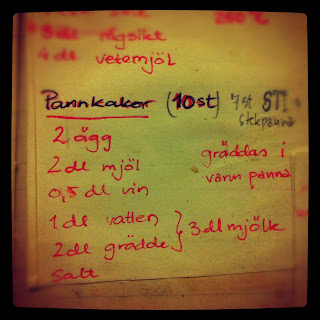 3 dl rågsikt
4 dl vetemjöl
Pannkakor (10st) 7 st STI
stekpanna
2 ägg
2 dl mjöl
0,5 dl vin
1 dl vatten
2 dl grädde } 3 dl mjölk
Salt
gräddas i
varm panna